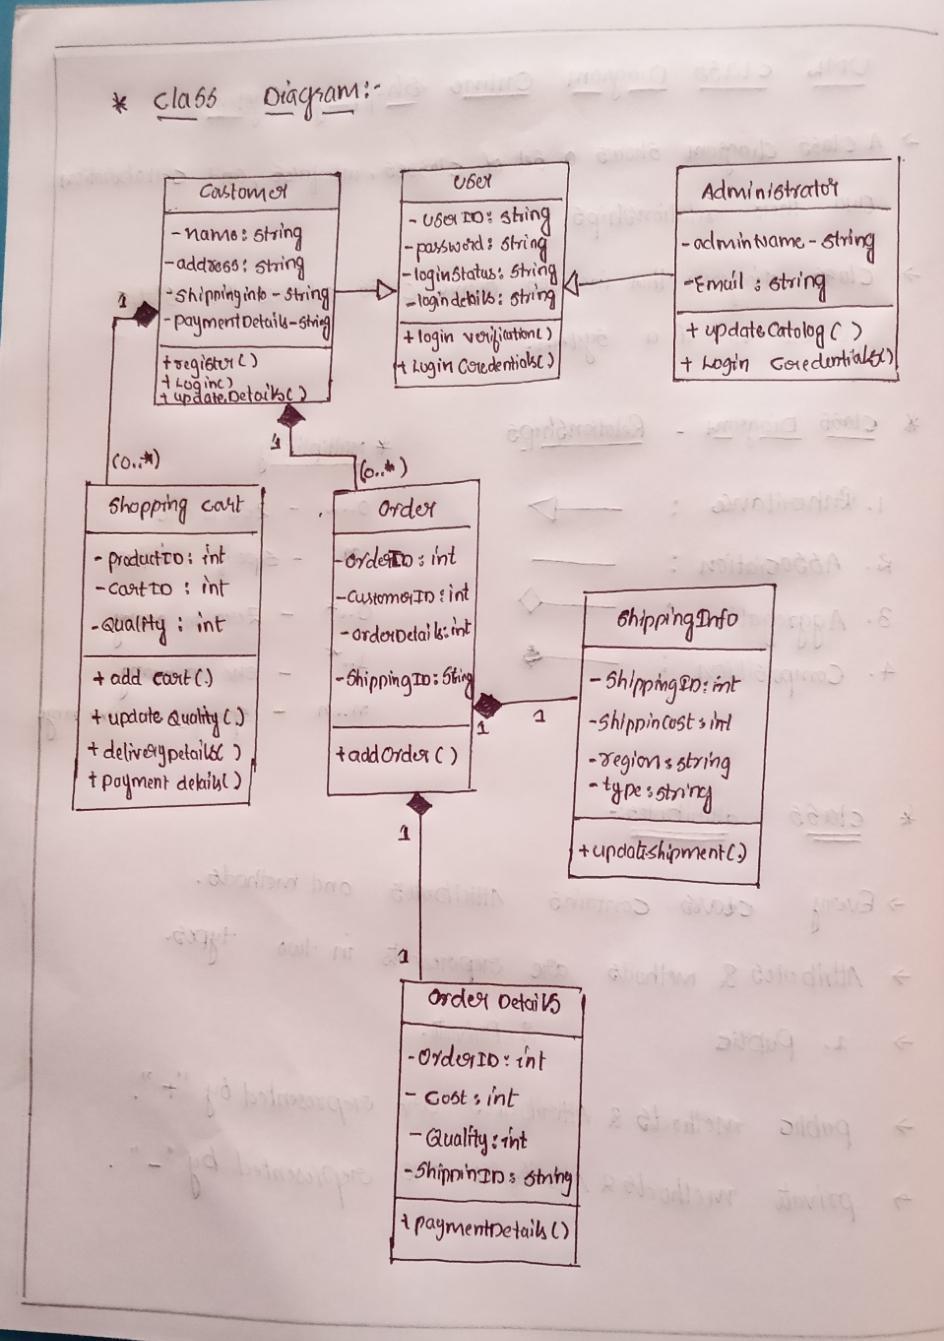 * Class Diagram:-
Castomer
-name: string
-address: string
-Shippinginfo-String
-paymentDetails-String
+register()
+Login()
+updateDetails()
User
-UserID: string
-password: string
-loginStatus: string
-logindetails: string
+login verification()
+Login Credentials()
Administrator
-adminName-string
-Email: string
+updateCatolog()
+Login Credentials()
1
(0..*)
1
(0..*)
Shopping cart
-productID: int
-CartID: int
-Quality: int
+add cart()
+update Quality()
+deliveryDetails()
+payment details()
Order
-OrderID: int
-CustomerID: int
-OrderDetails: int
-ShippingID: String
+addOrder()
1
1
ShippingInfo
-ShippingID: int
-ShippinCost: int
-region: string
-type: string
+updateshipment()
1
1
Order Details
-OrderID: int
-Cost: int
-Quality: int
-ShippinID: string
+paymentDetails()